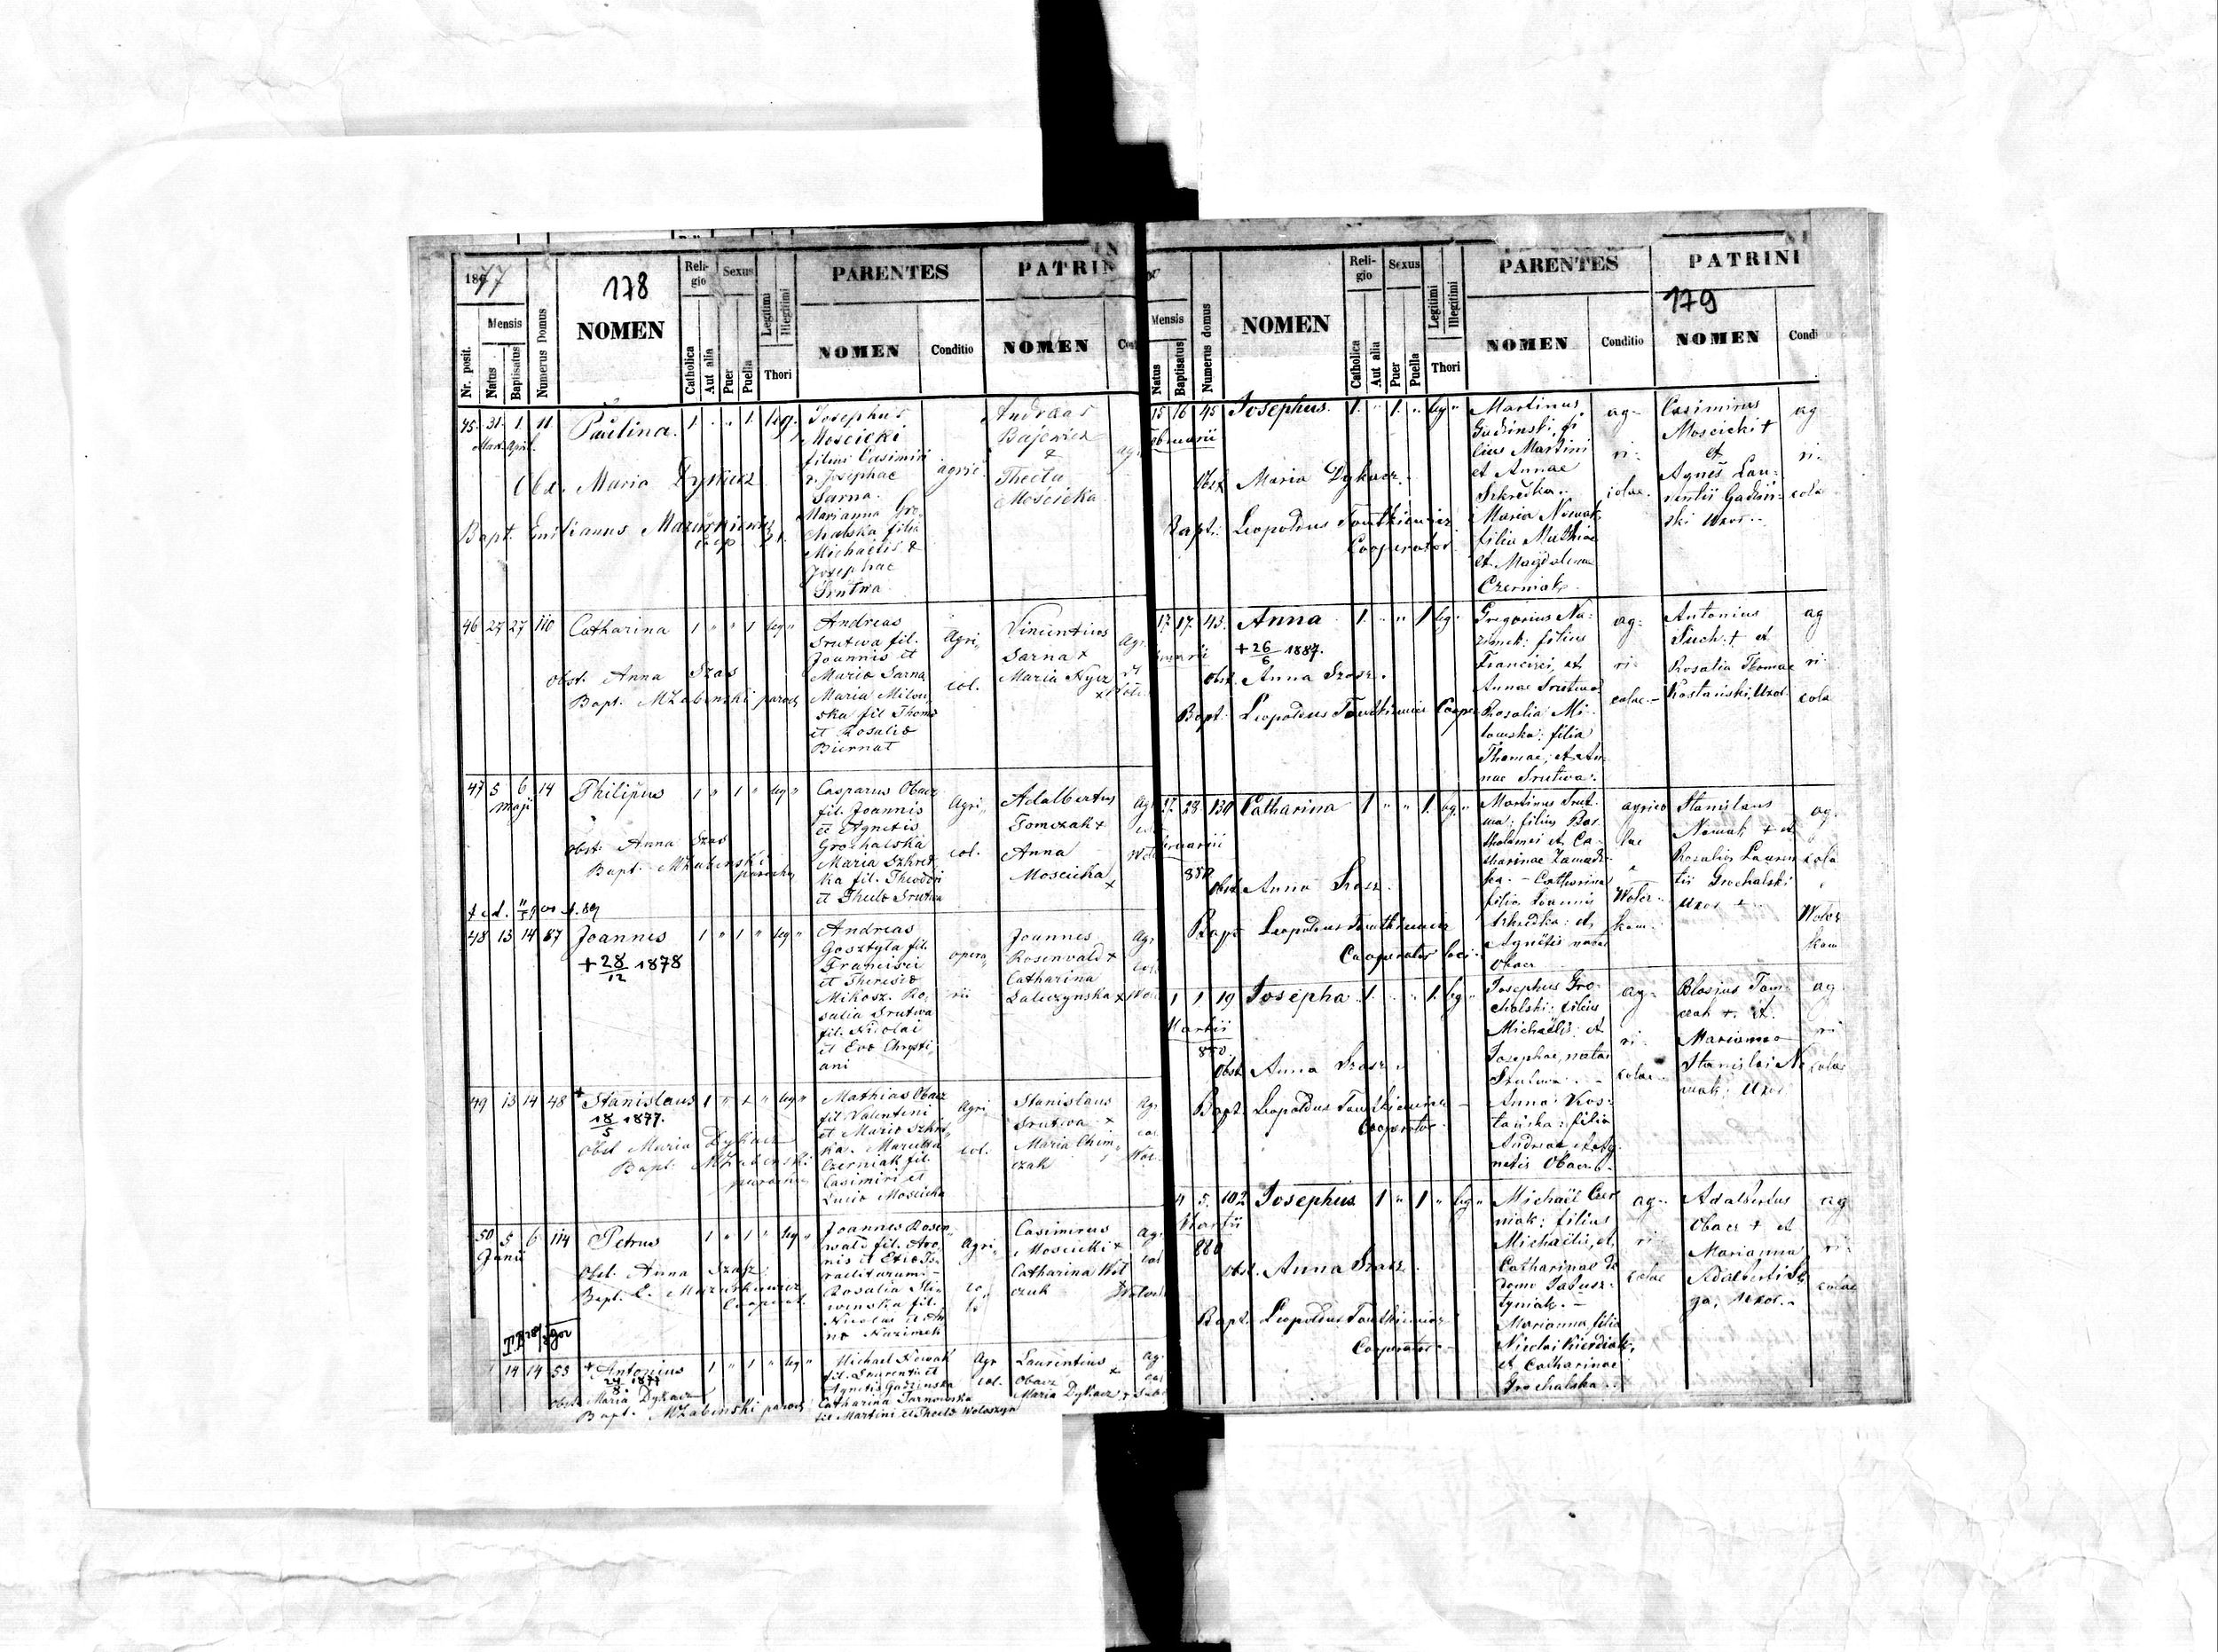 1877
178
Nr. posit.
Mensis
Natus
Baptisatus
Numerus Domus
NOMEN
Reli-
gio
Catholica
Aut alia
Sexus
Puer
Puella
Legitimi
Illegitimi
Thori
PARENTES
NOMEN
Conditio
PATRIN
NOMEN
45. 31. 1. 11 Paulina. 1 " " 1 leg.
Mart. April.
Obst. Maria Dykacz
Bapt. Emilianus Mazurkiewicz
Coop
Josephus
Moscicki
filius Casimiri
Josephae
Sarna.
Marianna Gro-
chalska filia
Michaelis &
Josephae
Srutwa
agric.
Andreas
Bajewicz
&
Thecla
Mościcka
46 27 27 110 Catharina 1 " " 1 leg "
obst. Anna Szas
Bapt. MZabenski paroch
Andreas
Srutwa fil.
Joannis et
Mario Sarna
Maria Milow
ska fil Thoma
et Rosalio
Biernat
Agri
col.
Vincentius
Sarna +
Maria Hycz
47 5 6 14 Philipus 1 " 1 " leg "
Maji
obst. Anna Szas
Bapt. MZabenski
parochus
Casparus Obacz
fil. Joannis
et Agnetis
Grochalska
Maria Szkred
ka fil. Theodori
et Theclo Srutwa
Agri
col.
Adalbertus
Tomczak +
Anna
Moscicka
+
48 13 14 87 Joannes 1 " 1 " leg "
+ 28/12 1878
Andreas
Gosztyla fil.
Francisci
et Theresio
Mikosz. Ro
salia Srutwa
fil. Nicolai
et Evo Chrysti
ani
opera
rii
Joannes
Rosenwald +
Catharina
Saleczynska +
49 13 14 48 + Stanislaus 1 " 1 " leg "
18/5 1877.
Obst Maria Dykacz
Bapt. MZabenski
parochus
Mathias Obacz
fil Valentini
et Mario Szkred
ka. Maria
Czerniak fil.
Casimiri et
Lucio Moscicka
Agri
col.
Stanislaus
Srutwa +
Maria Chim
czak
50 5 6 114 Petrus 1 " 1 " leg "
Junii
Obst. Anna Szasz
Bapt. E. Mazurkiewicz
Cooperat.
Joannes Rosen
wald fil. Aro
nis et Etio Is
raelitarum. -
Rosalia Sli
winska fil.
Nicolai et An
no Nazimek
Agri
co
lo
Casimirus
Moscicki +
Catharina Wol
czuk
14 14 53 + Antonius 1 " 1 " leg "
24/8 1877
obst. Maria Dykacz
Bapt. MZabenski paroch
Michael Nowak
fil. Laurentii et
Agnetis Gadzinska
Catharina Tarnowska
fil Martini et Theclo Woloszyn
Agr
col.
Laurentius
Obacz +
Maria Dykacz +
179
Mensis
Natus
Baptisatus
Numerus domus
NOMEN
Reli-
gio
Catholica
Aut alia
Sexus
Puer
Puella
Legitimi
Illegitimi
Thori
PARENTES
NOMEN
Conditio
PATRINI
NOMEN
Condi
15 16 45 Josephus. 1. " 1. " leg "
Obst Maria Dykacz.
Bapt. Leopoldus
Cooperator
Martinus
Gadzinski, fi
lius Martini
et Annae
Szkredka.
Maria Nowak
filia Mathiae
et Magdalena
Czerniak
ag-
ri-
colae.
Casimirus
Moscicki +
et
Agnes Lau-
rentii Gadzin-
ski Uxor.
ag
ri-
cola
17 17. 43. Anna 1. " " 1 leg.
+ 26/6 1887.
Obst. Anna Szasz.
Bapt. Leopoldus Cooper
Gregorius Na-
zimek: filius
Francisci, et
Annae Srutwa
Rosalia Mi-
lowska: filia
Thomae, et An
nae Srutwa:
ag-
ri-
colae.-
Antonius
Such. + et
Rosalia Thomae
Kostański Uxor.
ag
ri-
cola
27. 28 130 Catharina 1 " " 1. leg. "
Obst. Anna Szasz.
Bapt Leopoldus
Cooperator loci
Martinus Srut-
wa: filius Bar
tholomei et Ca-
tharinae Zawadz-
ka. - Catharina
filia Joannis
Szkredka: et
Agnetis nata
Obacz
agrico
lae
Stanislaus
Nowak + et
Rosalia Lauren
tii Grochalski
Uxor +
ag.
cola
1 1 19 Josepha 1. " " 1. leg "
Martii
880.
Obst Anna Szasz.
Bapt. Leopoldus
Cooperator
Josephus Gro-
chalski: filius
Michaëlis: et
Josephae, natae
Srutwa. -
Anna Kos-
tańska: filia
Andreae et Ag-
netis Obacz.
ag-
ri-
colae
Blasius Tom-
czak +. et.
Marianna
Stanislai No
wak: Uxor
ag-
ri
colae
4 5. 102 Josephus 1 " 1 " leg "
Martii
880
Obst. Anna Szasz.
Bapt. Leopoldus
Cooperator.
Michaël Czer
niak: filius
Michaëlis, et
Catharinae de
domo
Marianna, filia
Nicolai
et Catharinae
Grochalska.
ag-
ri-
colae
Adalbertus
Obacz + et
Marianna
Adalberti
Uxor.
ag
ri-
colae